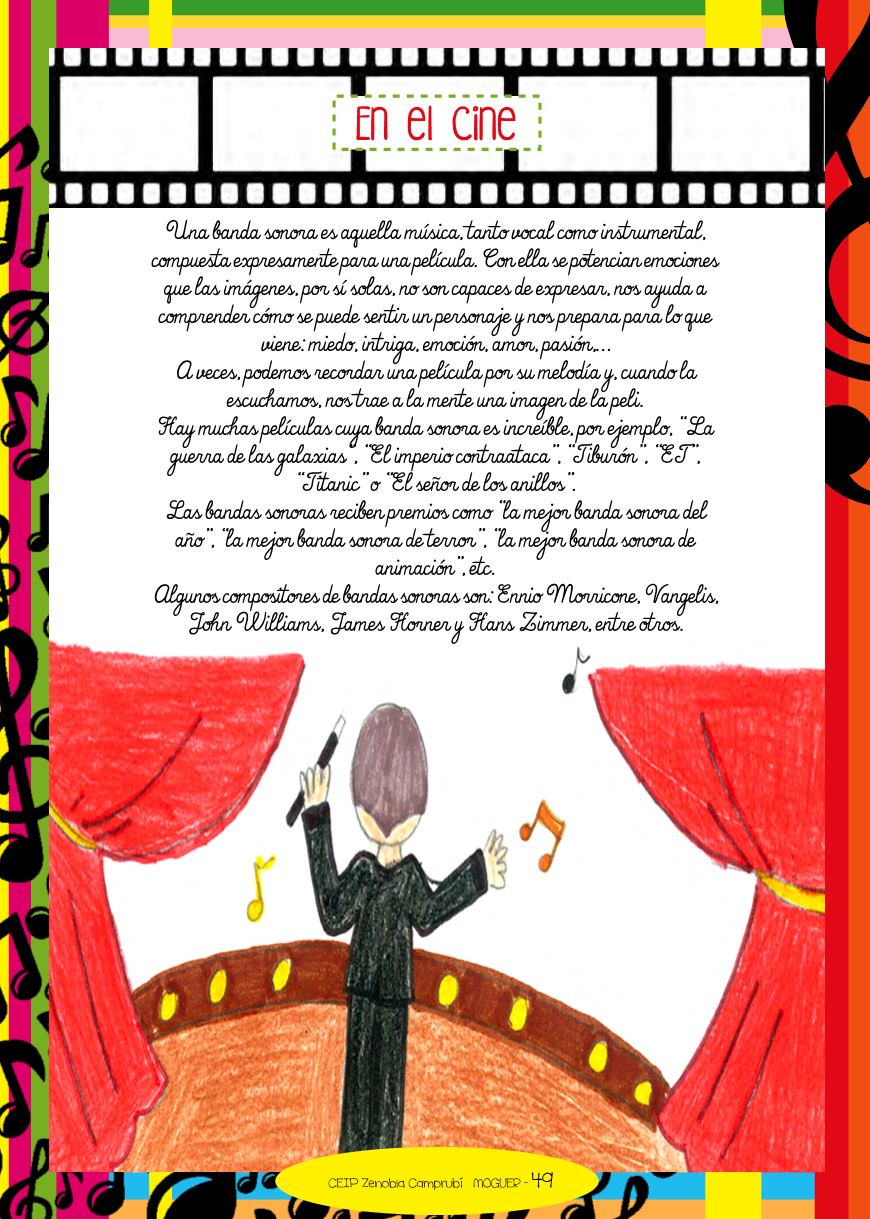 En el cine
Una banda sonora es aquella música, tanto vocal como instrumental,
compuesta expresamente para una película. Con ella se potencian emociones
que las imágenes, por sí solas, no son capaces de expresar, nos ayuda a
comprender cómo se puede sentir un personaje y nos prepara para lo que
viene: miedo, intriga, emoción, amor, pasión,...
A veces, podemos recordar una película por su melodía y, cuando la
escuchamos, nos trae a la mente una imagen de la peli.
Hay muchas películas cuya banda sonora es increíble, por ejemplo, “La
guerra de las galaxias”, “El imperio contraataca”, “Tiburón”, “ET”,
“Titanic” o “El señor de los anillos”.
Las bandas sonoras reciben premios como “la mejor banda sonora del
año”, “la mejor banda sonora de terror”, “la mejor banda sonora de
animación”, etc.
Algunos compositores de bandas sonoras son: Ennio Morricone, Vangelis,
John Williams, James Horner y Hans Zimmer, entre otros.
CEIP Zenobia Camprubí MOGUER - 49